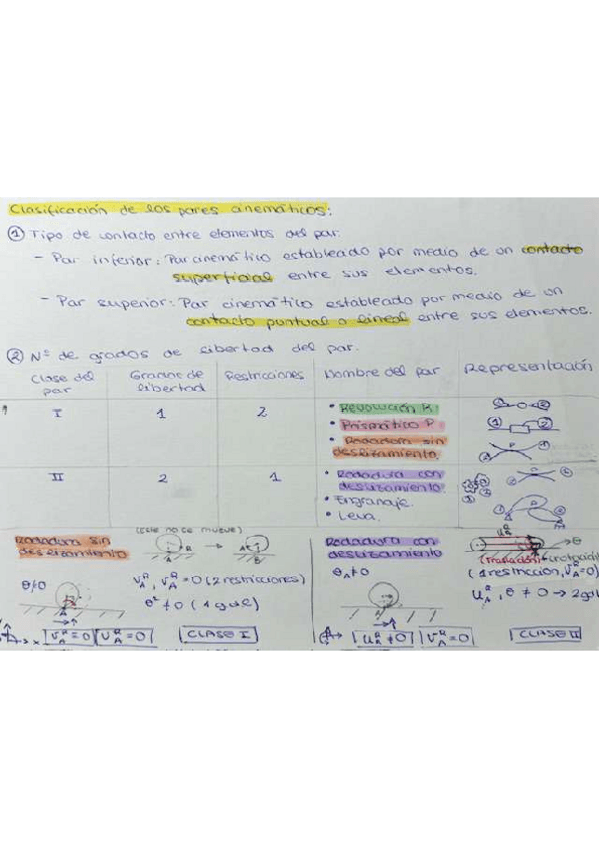 Clasificación de los pares cinemáticos:
① Tipo de contacto entre elementos del par.
- Par inferior: Par cinemático establecado por medio de un contacto
superficial entre sus elementos.
- Par superior: Par cinemático establecado por medio de un
contacto puntual o lineal entre sus elementos.
② Nº de grados de libertad del par.
Clase del par | Grados de libertad | Restricciones | Nombre del par | Representación
I | 1 | 2
• Revolución R.
• Prismático P
• Rodadura sin
deslizamiento.
II | 2 | 1
• Rodadura con
deslizamiento.
• Engranaje.
• Leva.
Rodadura sin
deslizamiento
(Este no se mueve)
θ≠0
(2 restricciones)
(1 gdl)
CLASE I
Rodadura con
deslizamiento
θ_A≠0
(Traslación)
(1 restricción,
θ ≠ 0 → 2gdl
CLASE II